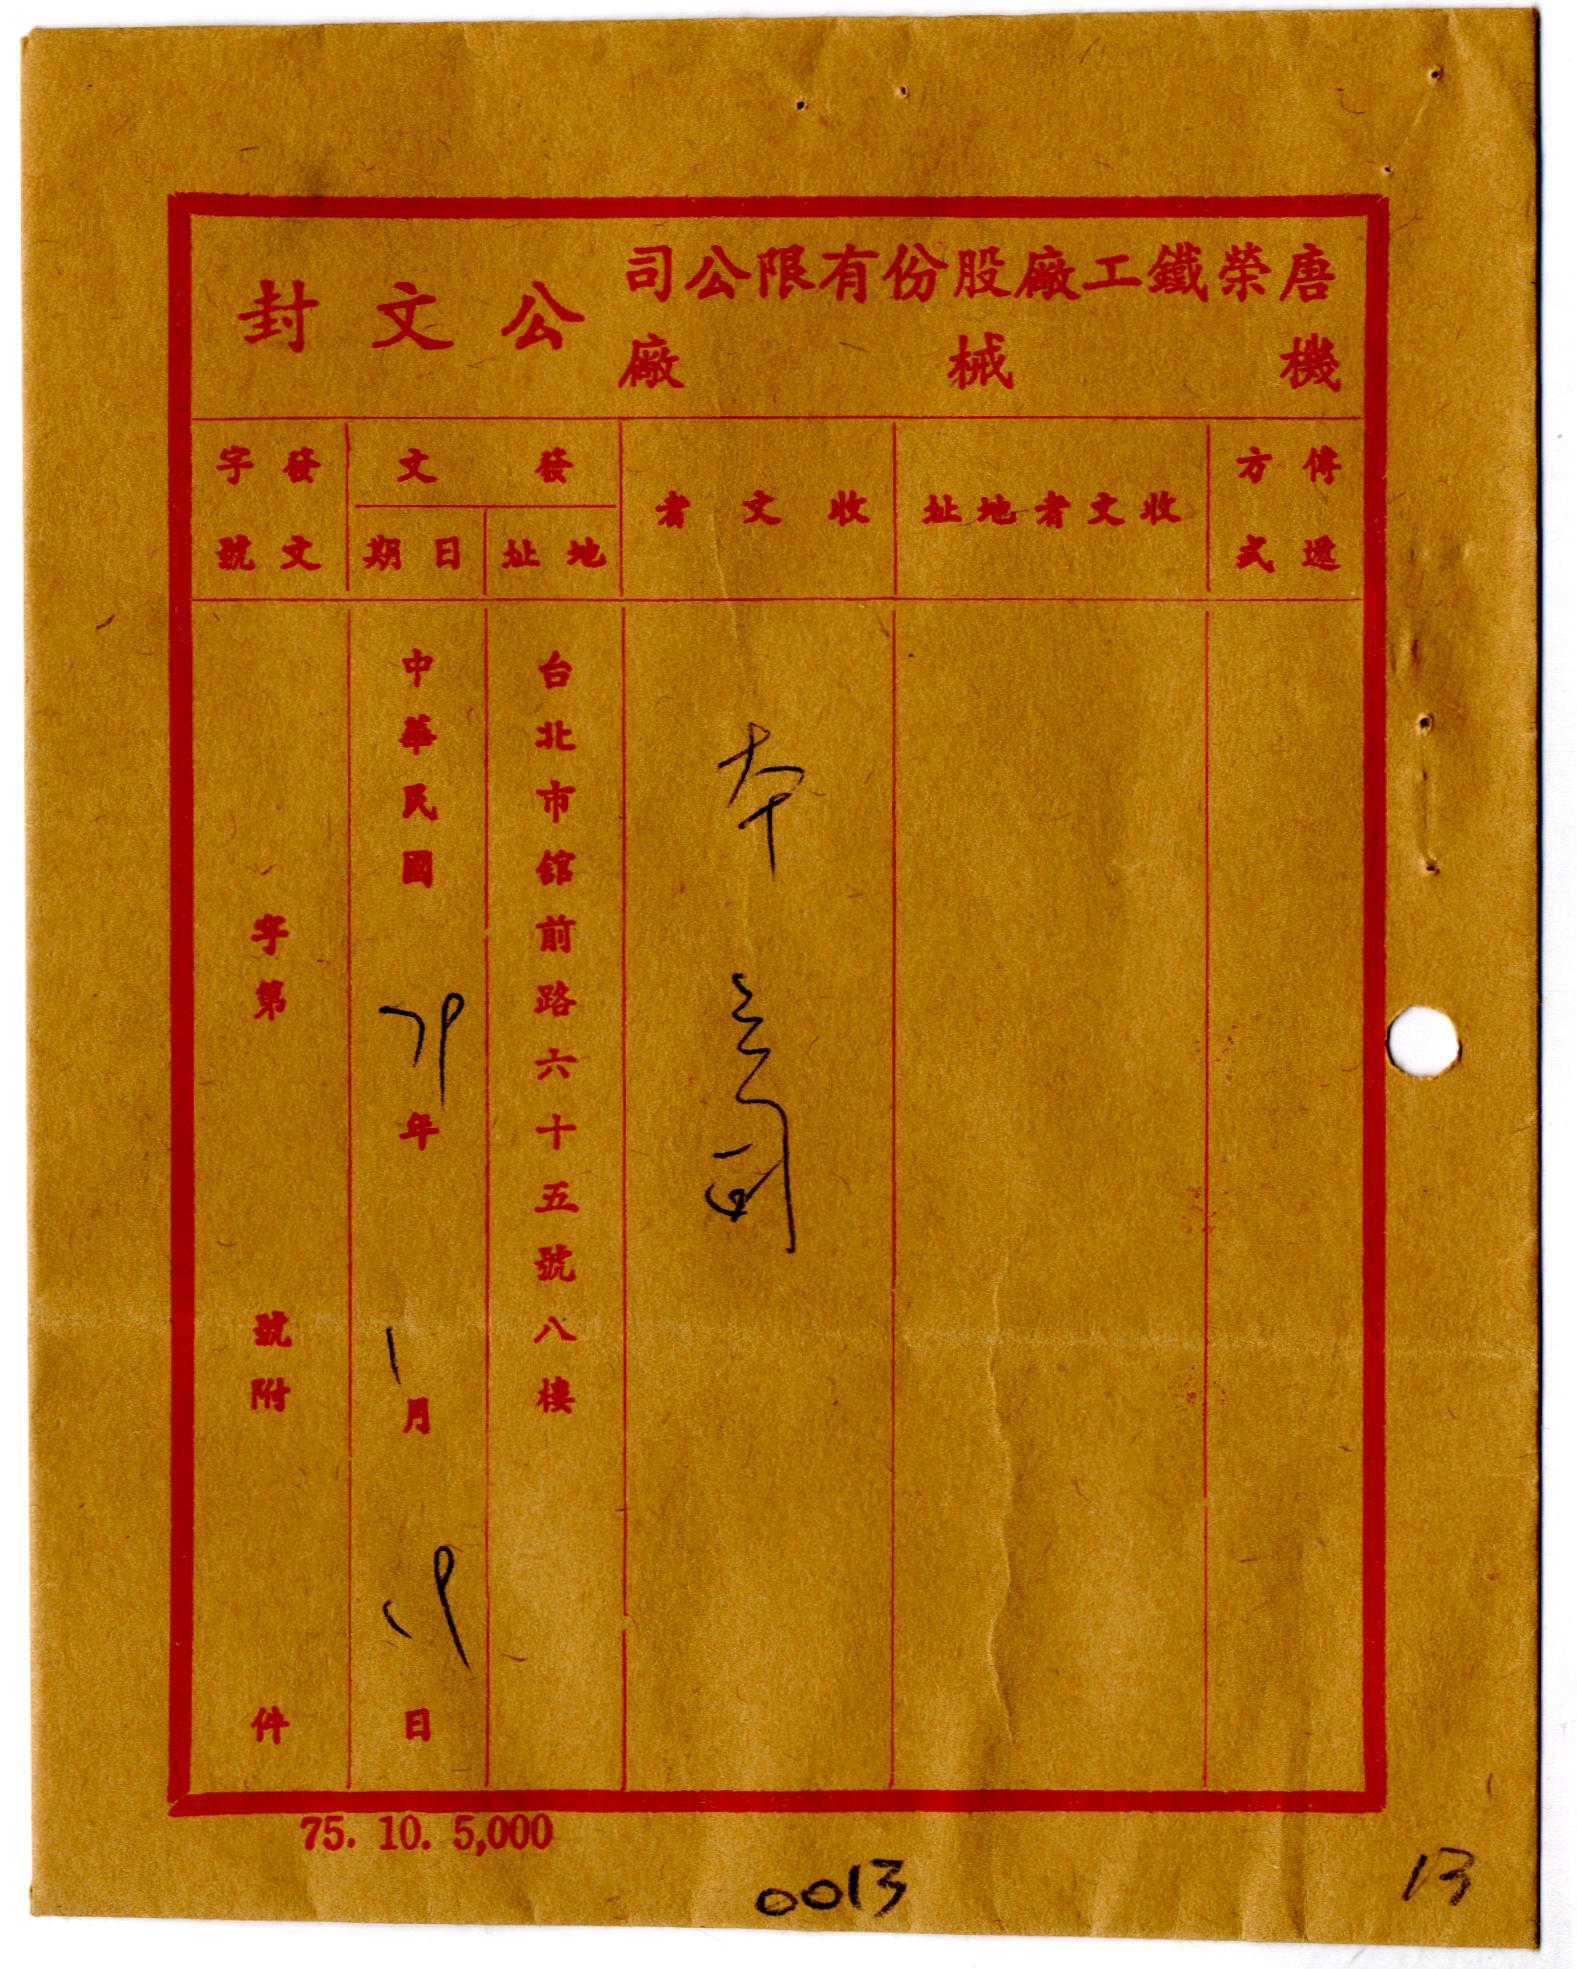 唐榮鐵工廠股份有限公司
機械廠
公文封
傳遞方式
收文者地址
收文者
發文
地址
日期
發文字號
本公司
台北市館前路六十五號八樓
中華民國79年1月19日
字第 號附 件
75. 10. 5,000
0013
13